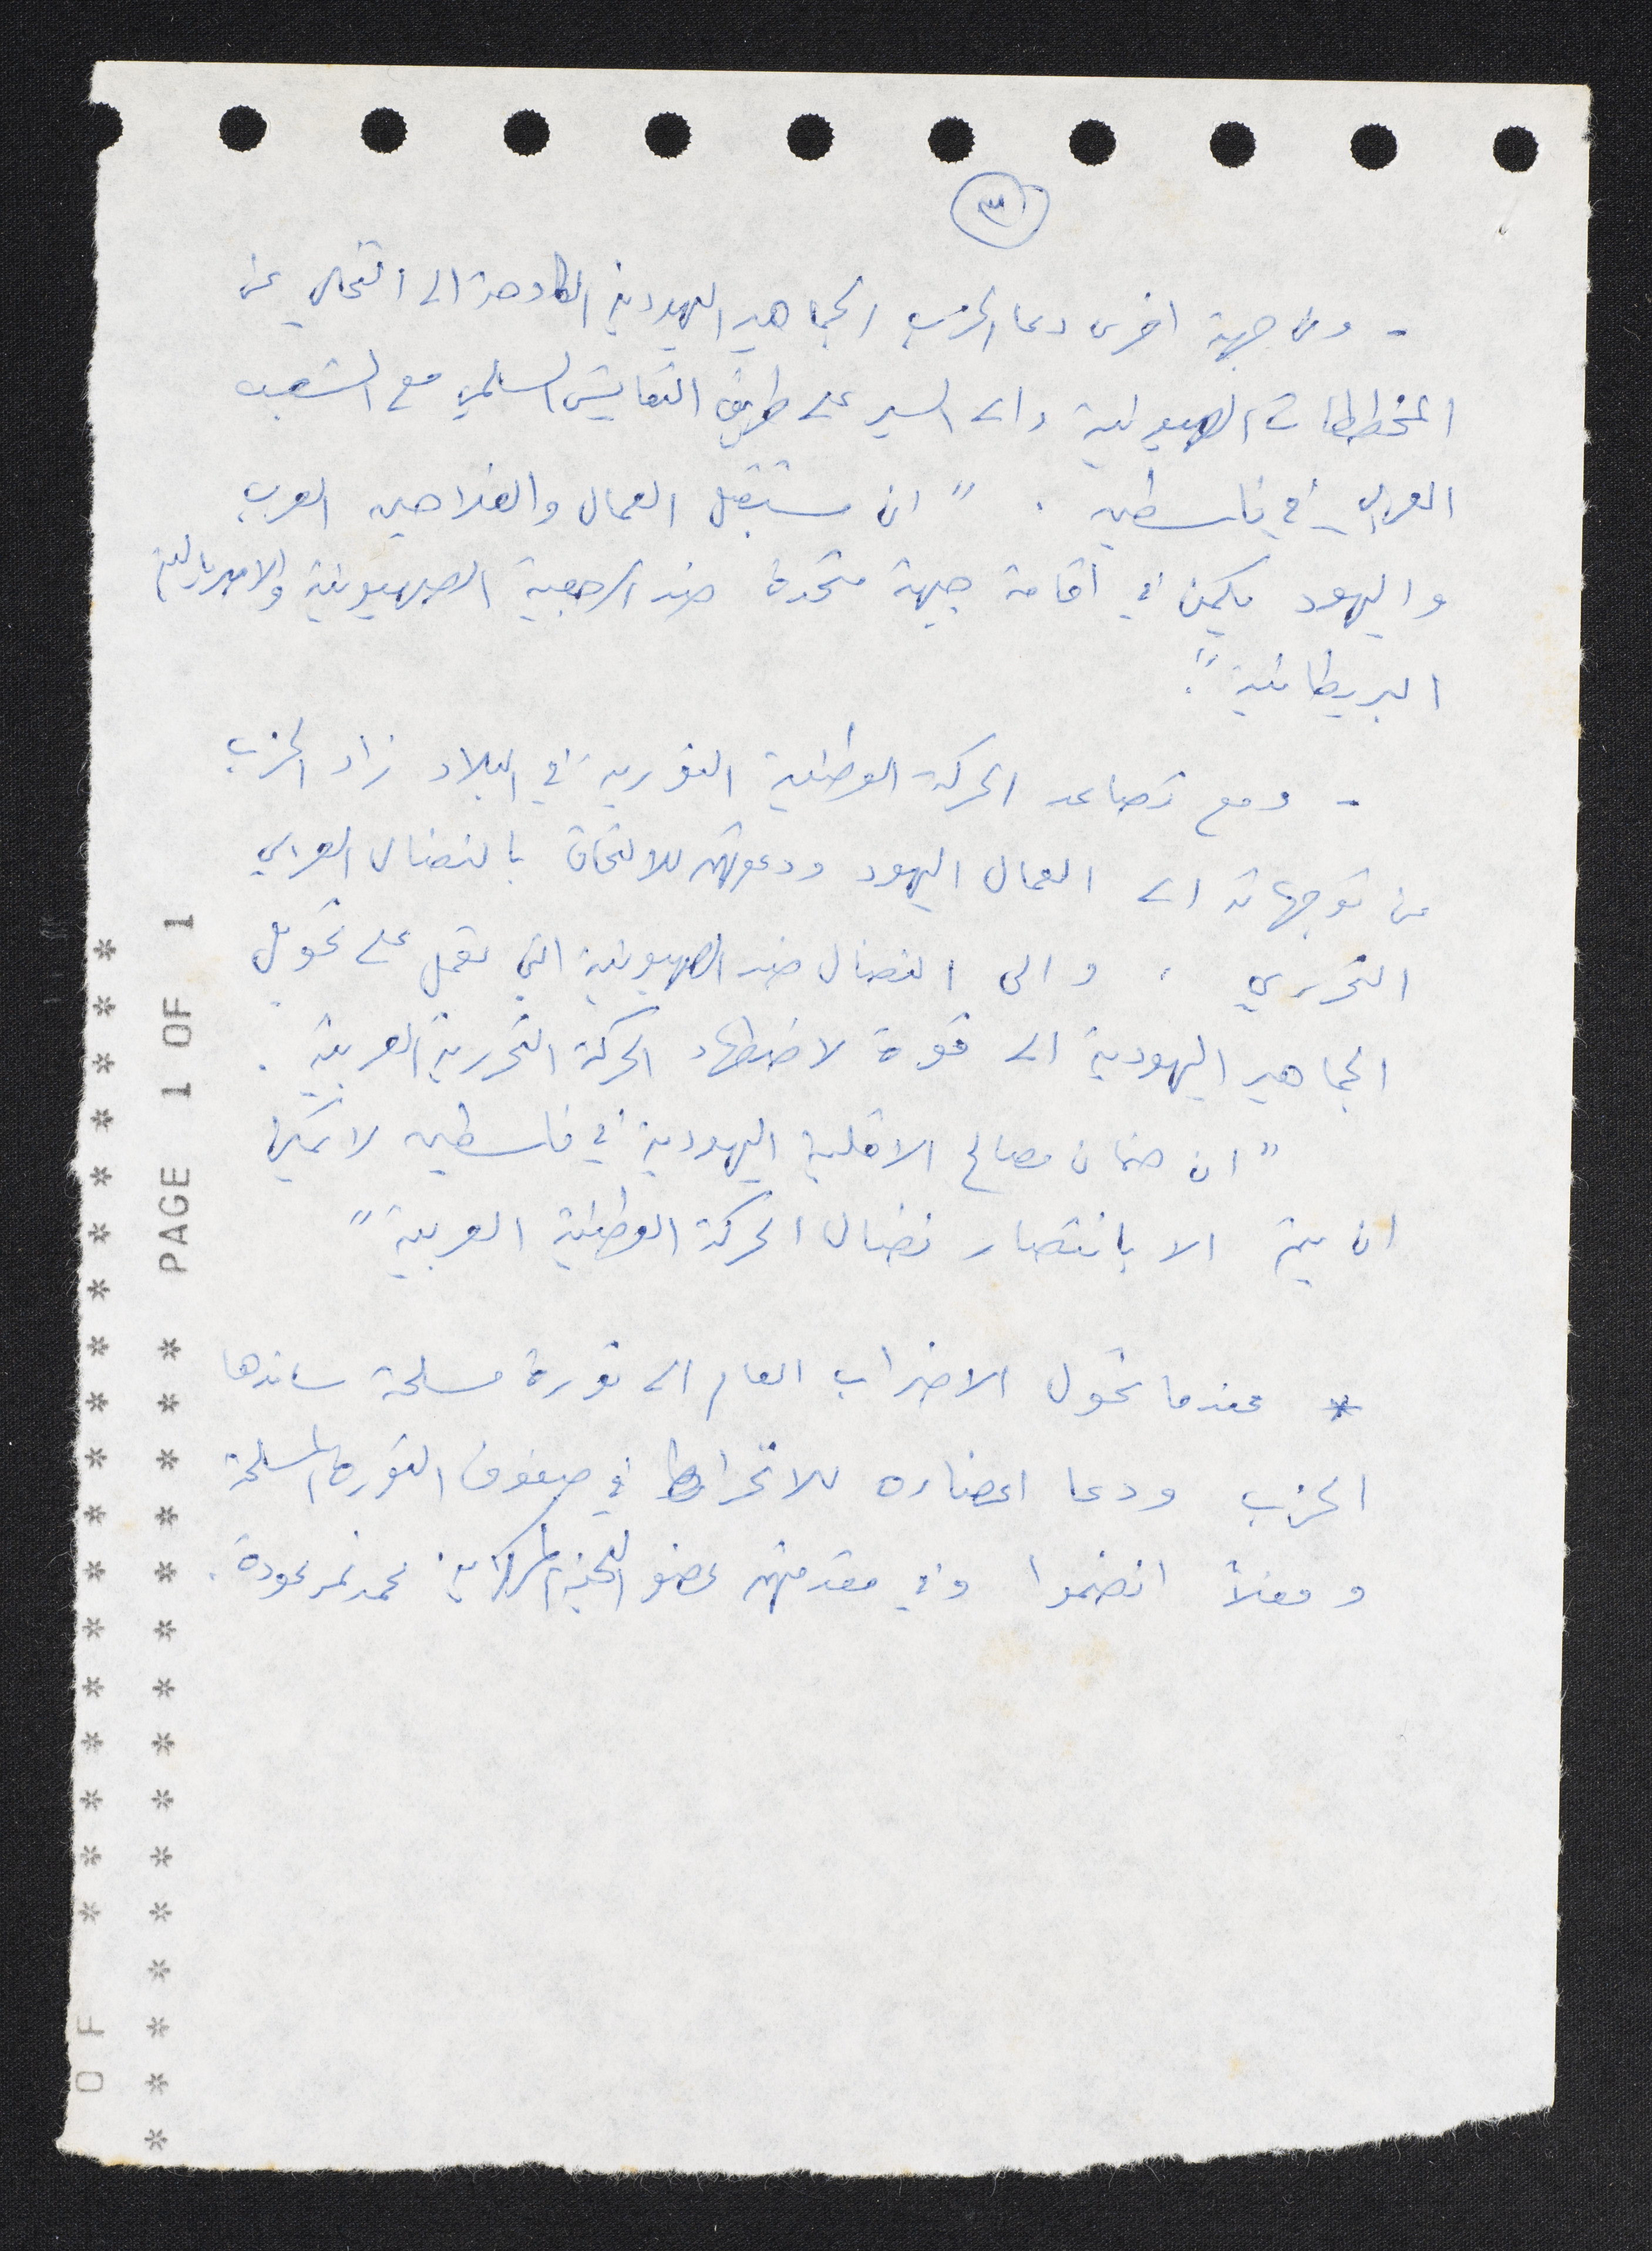 ٣
- ومن جهة اخرى دعا الحزب الجماهير اليهودية الكادحة الى التخلي عن
المخططات الصهيونية والى السير على طريق التعايش السلمي مع الشعب
العربي في فلسطين . " ان مستقبل العمال والفلاحين العرب
واليهود يكمن في اقامة جبهة متحدة ضد الرجعية الصهيونية والامبريالية
البريطانية ".
- ومع تصاعد الحركة الوطنية الثورية في البلاد زاد الحزب
من توجهاته الى العمال اليهود ودعوتهم للالتحاق بالنضال العربي
التحرري ، والى النضال ضد الصهيونية التي تعمل على تحويل
الجماهير اليهودية الى قوة لاضطهاد الحركة التحررية العربية .
" ان ضمان مصالح الاقلية اليهودية في فلسطين لا يمكن
ان يتم الا بانتصار نضال الحركة الوطنية العربية "
* عندما تحول الاضراب العام الى ثورة مسلحة ساندها
الحزب ودعا اعضاءه للانخراط في صفوف الثورة المسلحة
وفعلاً انضموا وفي مقدمتهم عضو اللجنة المركزية محمد نمر عودة .
* * * * * * * * * * * * * * * PAGE 1 OF 1
OF * * * * * * * * * * * * * * * * * *